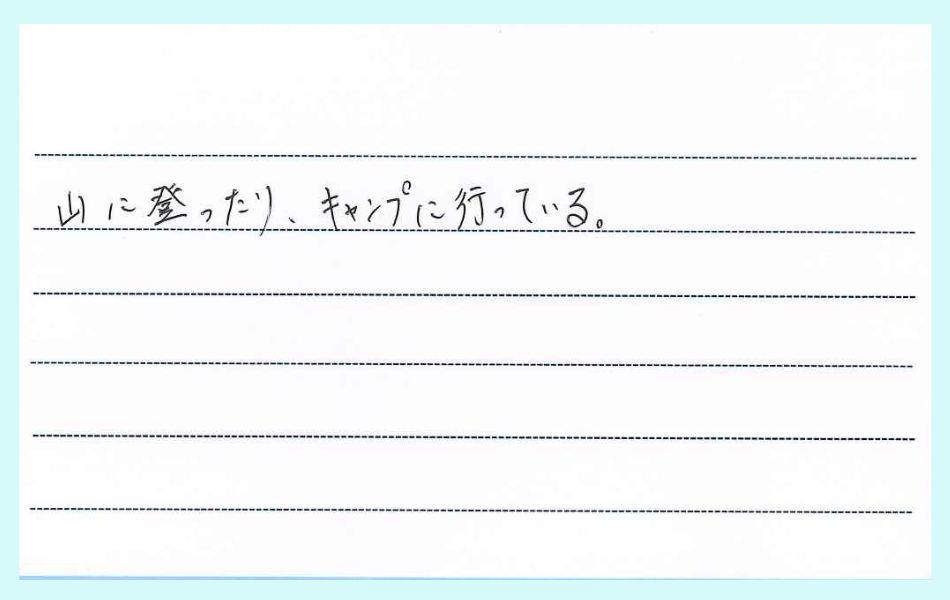 山に登ったり、キャンプに行っている。